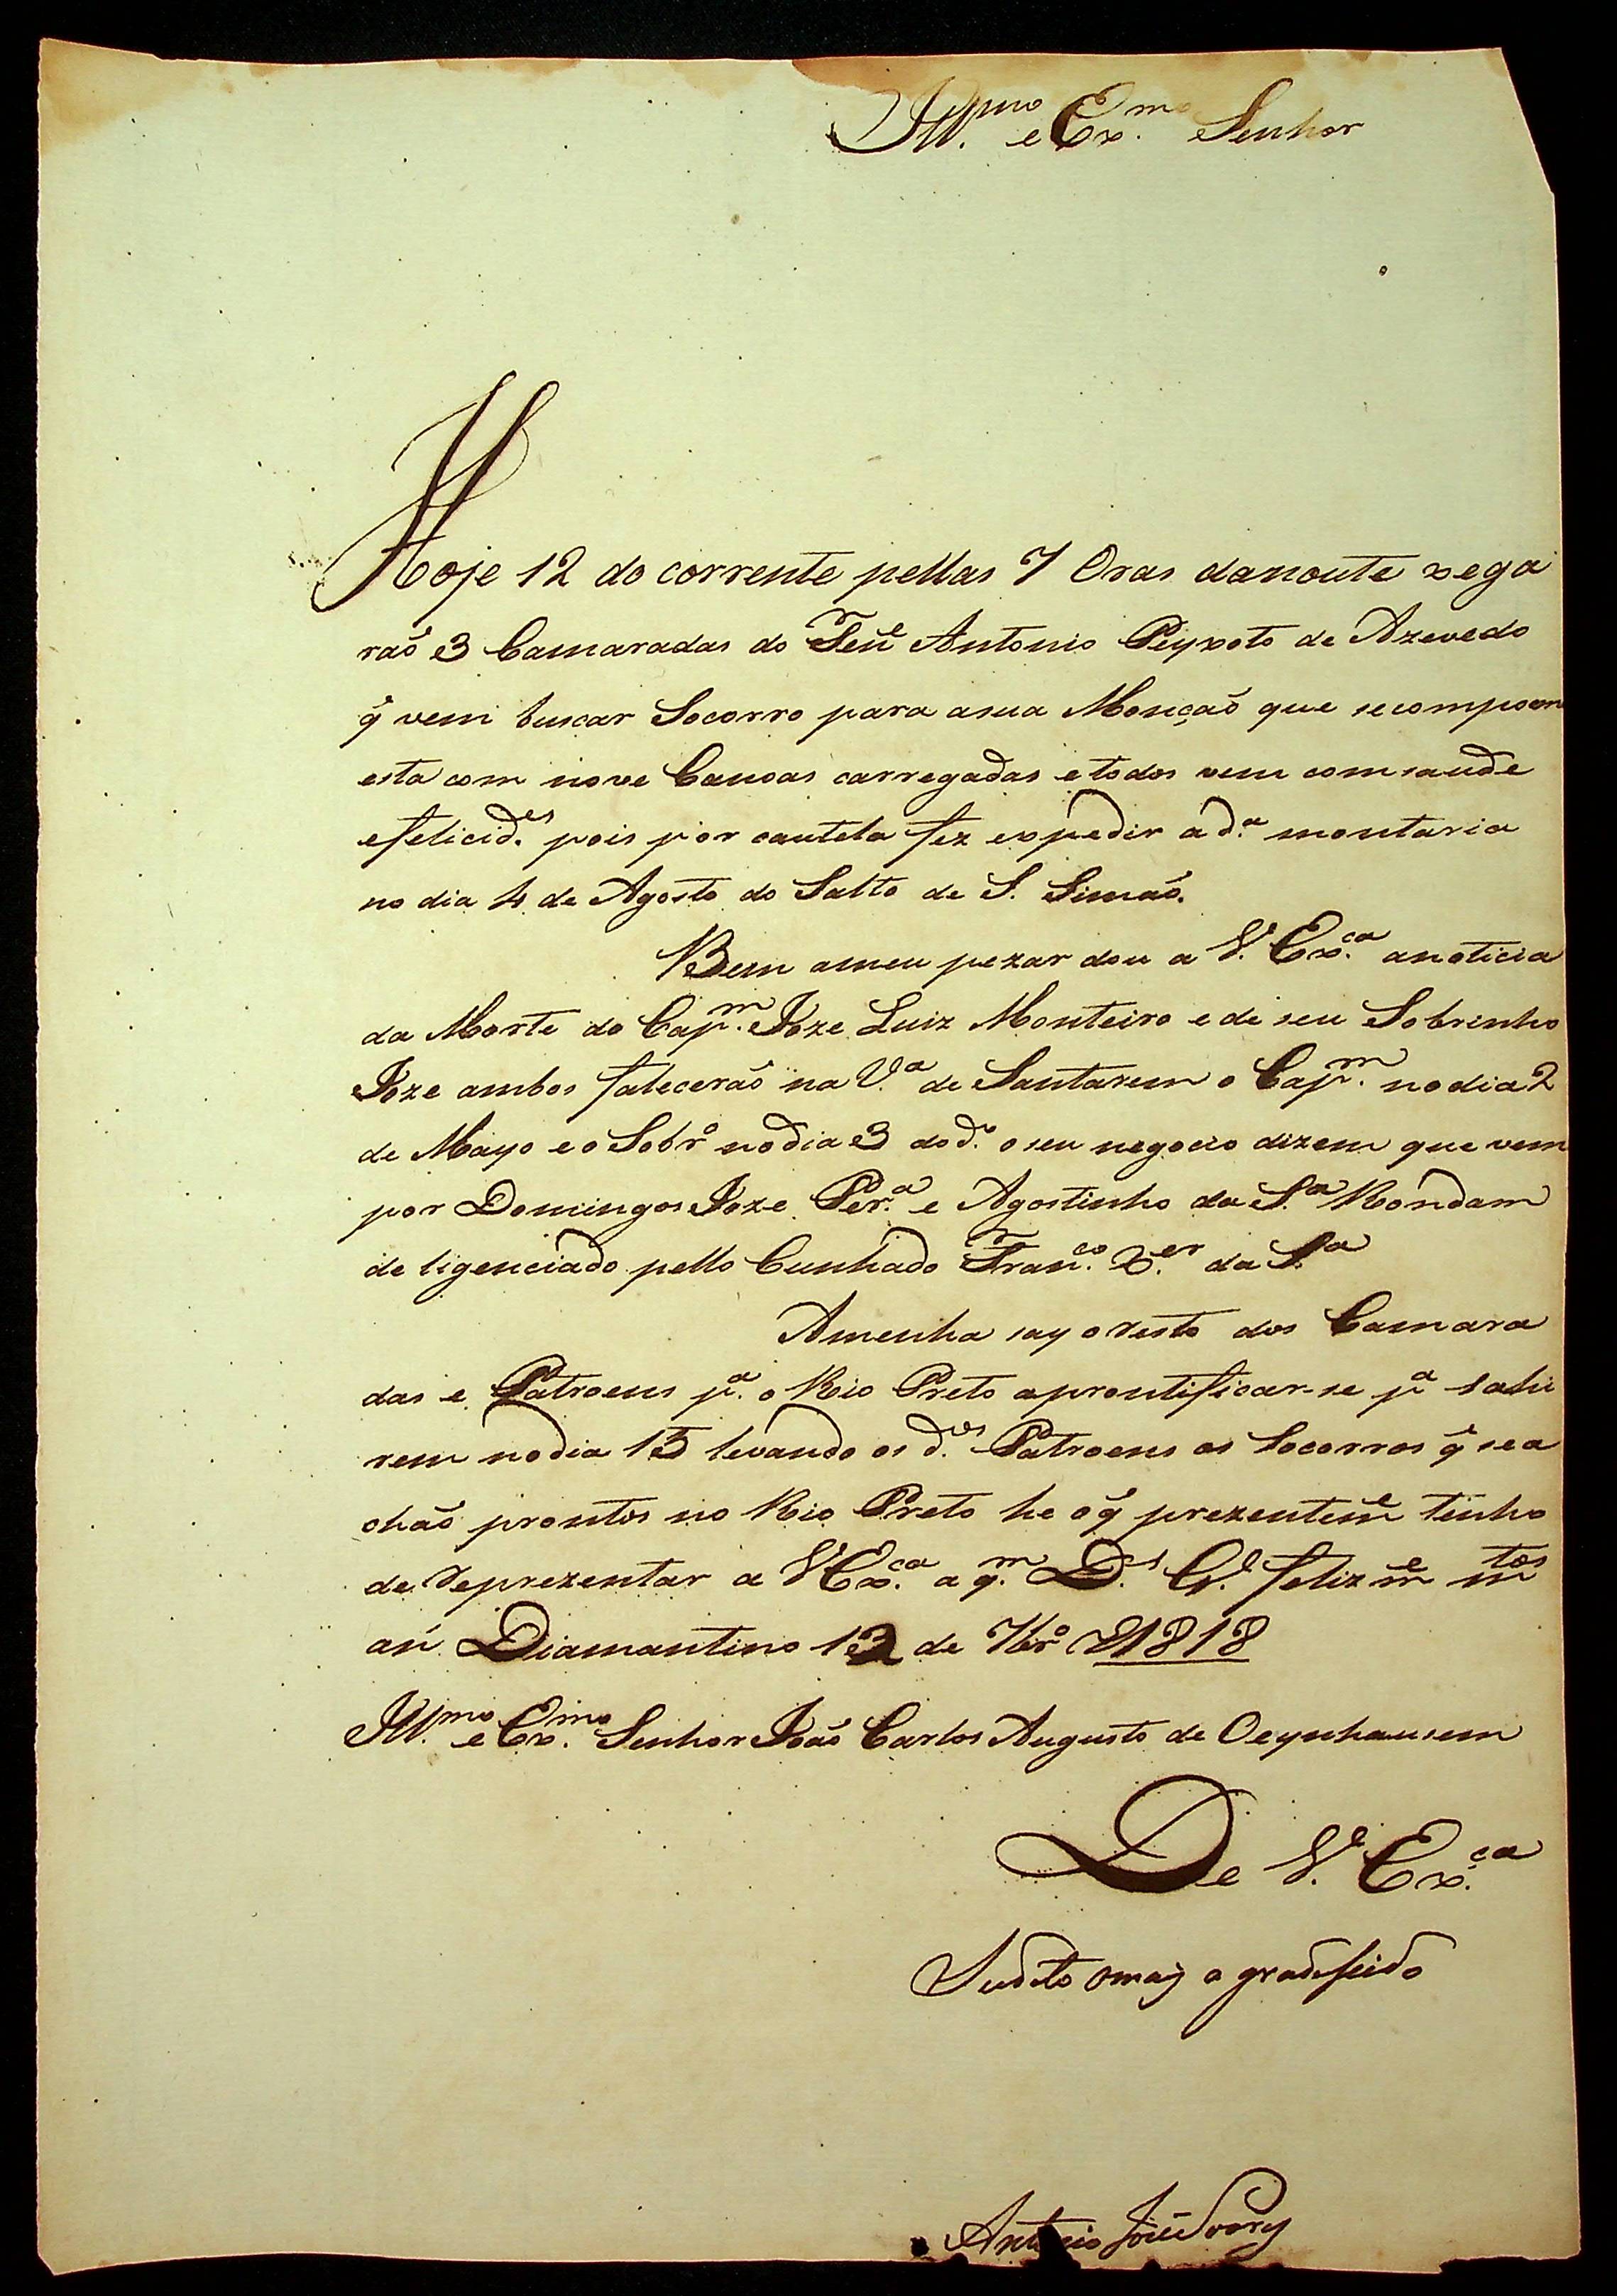 Ill.mo e Ex.mo Senhor
Hoje 12 do corrente pellas 7 Oras danoute xega
raõ 3 Camaradas do Ten.e Antonio Peyxoto de Azevedo
q̃ vem buscar Socorro para asua Monçaõ que secompoem
esta com nove Canoas carregadas etodos vem comsaude
efelicid.es pois por cautela fez expedir a d.a montaria
no dia 4 de Agosto do Salto de S. Simaõ.
Bem ameu pezar dou a V. Ex.ca anoticia
da Morte do Cap.m Joze Luiz Monteiro e de seu Sobrinho
Joze ambos faleceraõ na V.a de Santarem o Cap.m nodia 2
de Mayo e o Sobr.o nodia 3 dod.o o seu negocio dizem que vem
por Domingos Joze Per.a e Agostinho da S.a Rondam
deligenciado pello Cunhado Fran.co X.er da S.a
Amenha say oresto dos Camara
das e Patroens p.a o Rio Preto aprontificar-se p.a sahi
rem nodia 15 levando os d.os Patroens os Socorros q̃ sea
chaõ prontos no Rio Preto he oq̃ prezentem.e tenho
de reprezentar a V Ex.ca a q.m D.s G.e felizm.e m.tos
an. Diamantino 12 de 7br.o 1818
Ill.mo e Ex.mo Senhor Joaõ Carlos Augusto de Oeynhausem
De V. Ex.ca
Sudito omaj agradescido
Antonio Joze